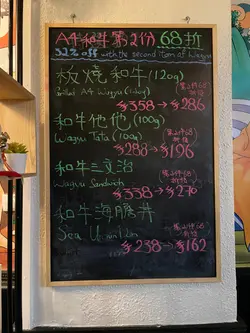 A4和牛第2份 68折
32% off with the second item of Wagyu
板燒和牛(120g)
Grilled A4 Wagyu (120g)
第2份68折後
$358→$286
和牛他他(100g)
Wagyu Tata (100g)
第2份68折後
$288→$196
和牛三文治
Wagyu Sandwich
第2份68折後
$338→$270
和牛海膽丼
Sea Urchin
第2份68折後
$238→$162